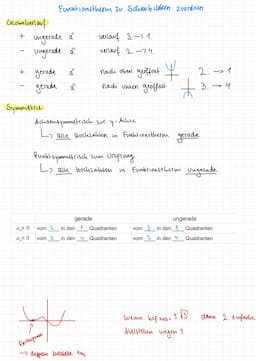 Funktionsterm zu Schaubildern zuordnen
Globalverlauf
+ ungerade aⁿ verlauf 3 → 1
- ungerade aⁿ verlauf 2 → 4
+ gerade aⁿ nach oben geöffnet 2 → 1
- gerade aⁿ nach unten geöffnet 3 → 4
Symmetrie
Achsensymmetrisch zur y-Achse
↳ alle Hochzahlen in Funktionsterm gerade
Punktsymmetrisch zum Ursprung
↳ alle Hochzahlen in Funktionsterm ungerade
gerade ungerade
aₙ > 0 vom 2 in den 1 Quadranten vom 3 in den 1 Quadranten
aₙ < 0 vom 3 in den 4 Quadranten vom 2 in den 4 Quadranten
wenn bsp x = ± √3 dann 2 einfache
Nullstellen wegen ±
→ doppelte